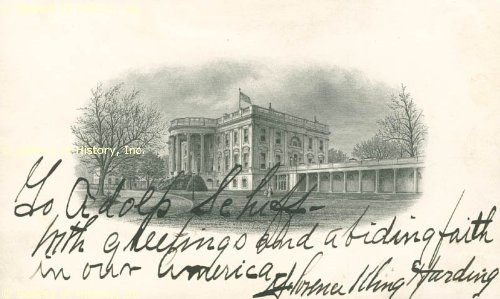 History, Inc.
To, Adolp Schiff-
With greetings and abiding faith
in our America,
Florence Kling Harding